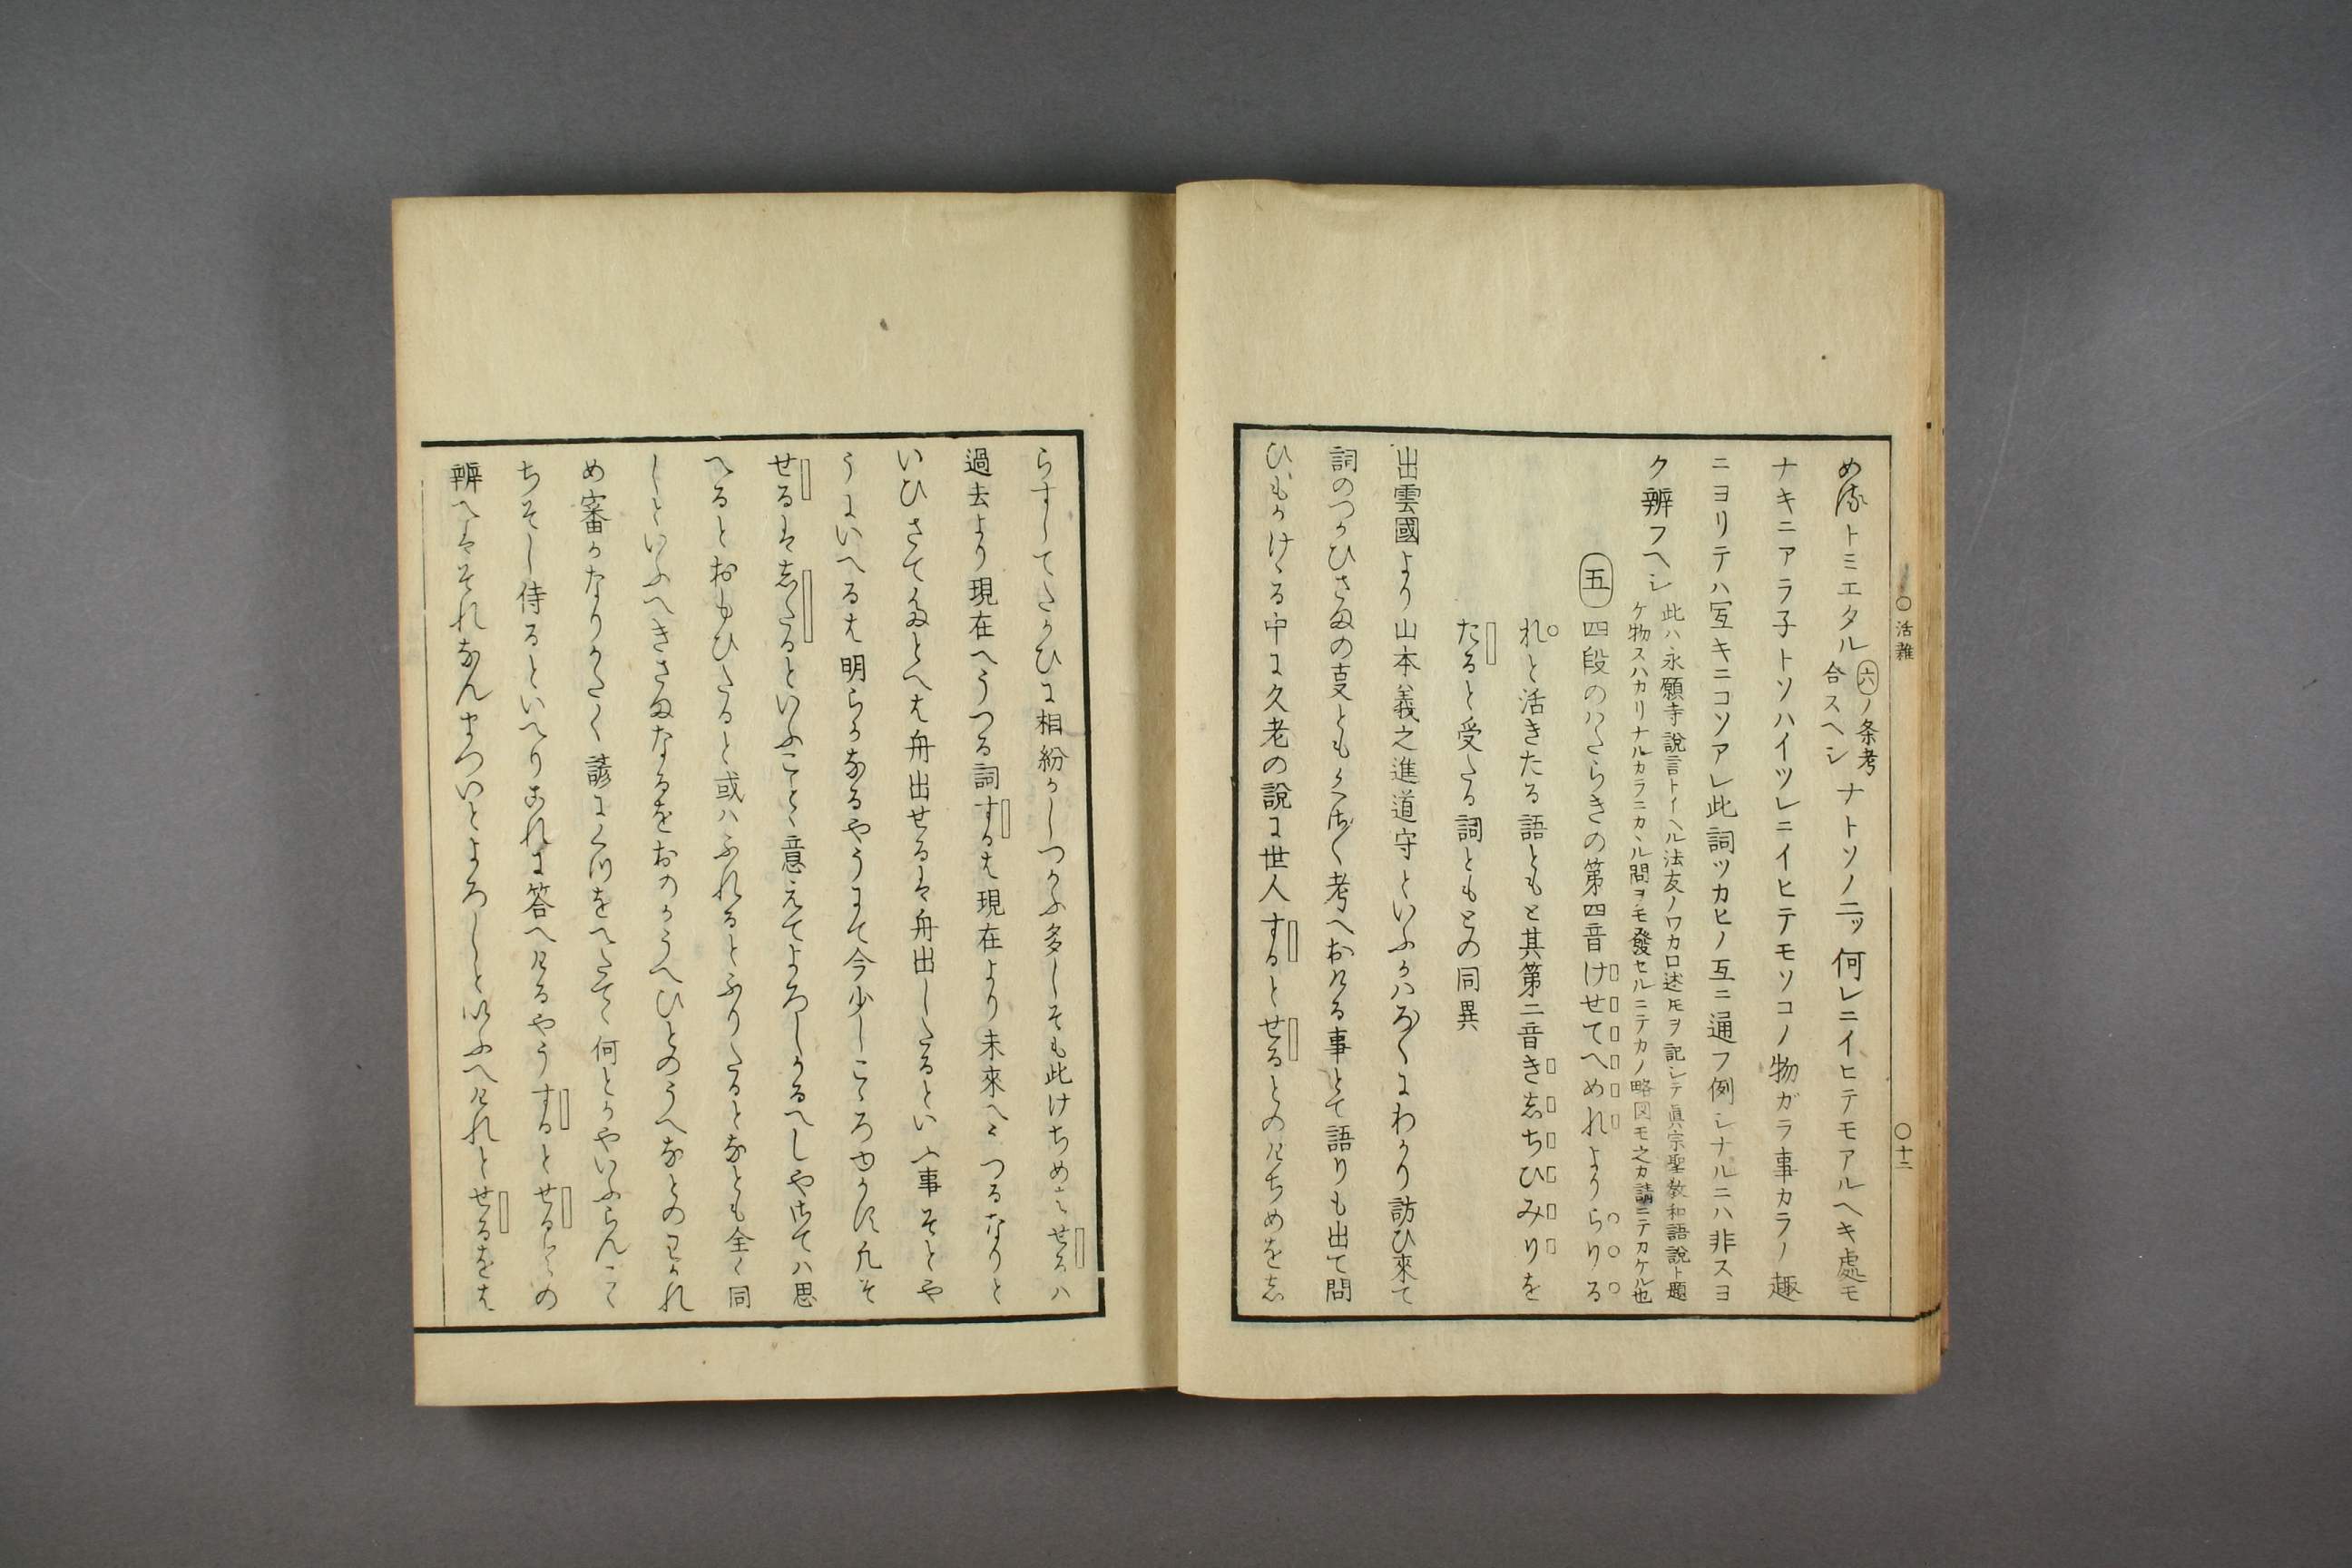 ○活雜
○十二
め流トミエタル
六ノ条考
合スヘシ
ナトソノ二ッ何レニイヒテモアルヘキ處モ
ナキニアラ子トソハイツレニイヒテモソコノ物ガラ事カラノ趣
ニヨリテハ冝キニコソアレ此詞ツカヒノ互ニ通フ例シナルニハ非スヨ
ク辨フヘシ
此ハ永願寺說言トイヘル法友ノワカ口述𪜈ヲ記シテ眞宗聖教和語說ト題
ケ物スハカリナルカラニカヽル問ヲモ發セルニテカノ略図モ之カ請ニテカケル也
五
四段のはたらきの第四音けせてへめれよりらりる
れと活きたる語ともと其第二音き志ちひみりを
たると受たる詞ともとの同異
出雲國より山本義之進道守といふかはろ〱にわかり訪ひ來て
詞のつかひさまの支ともくはし〱考へおける事とて語りも出て問
ひもかける中に久老の說に世人するとせるとのけちめを志
らすしてたかひに相紛かしつかふ多しそも此けちめはせるハ
過去より現在へうつる詞するは現在より未來へうつるなりと
いひさてたとへは舟出せるは舟出したるといふ事そとや
うにいへるは明らかなるやうにて今少しこゝろゆかす凡そ
せるは志たるといふことゝ意えてよろしかるへしやさてハ思
へるとおもひたると或ハふれるとふりたるとなとも全く同
しといふへきさまなるをおのかうへひとのうへなとのわかれ
め審かなりかたく諺にく川をへたてゝ何とかやいふらんこゝ
ちそし侍るといへりこれに答へけるやうするとせるとの
辨へはそれなんまついとよろしと以ふへけれとせるをは